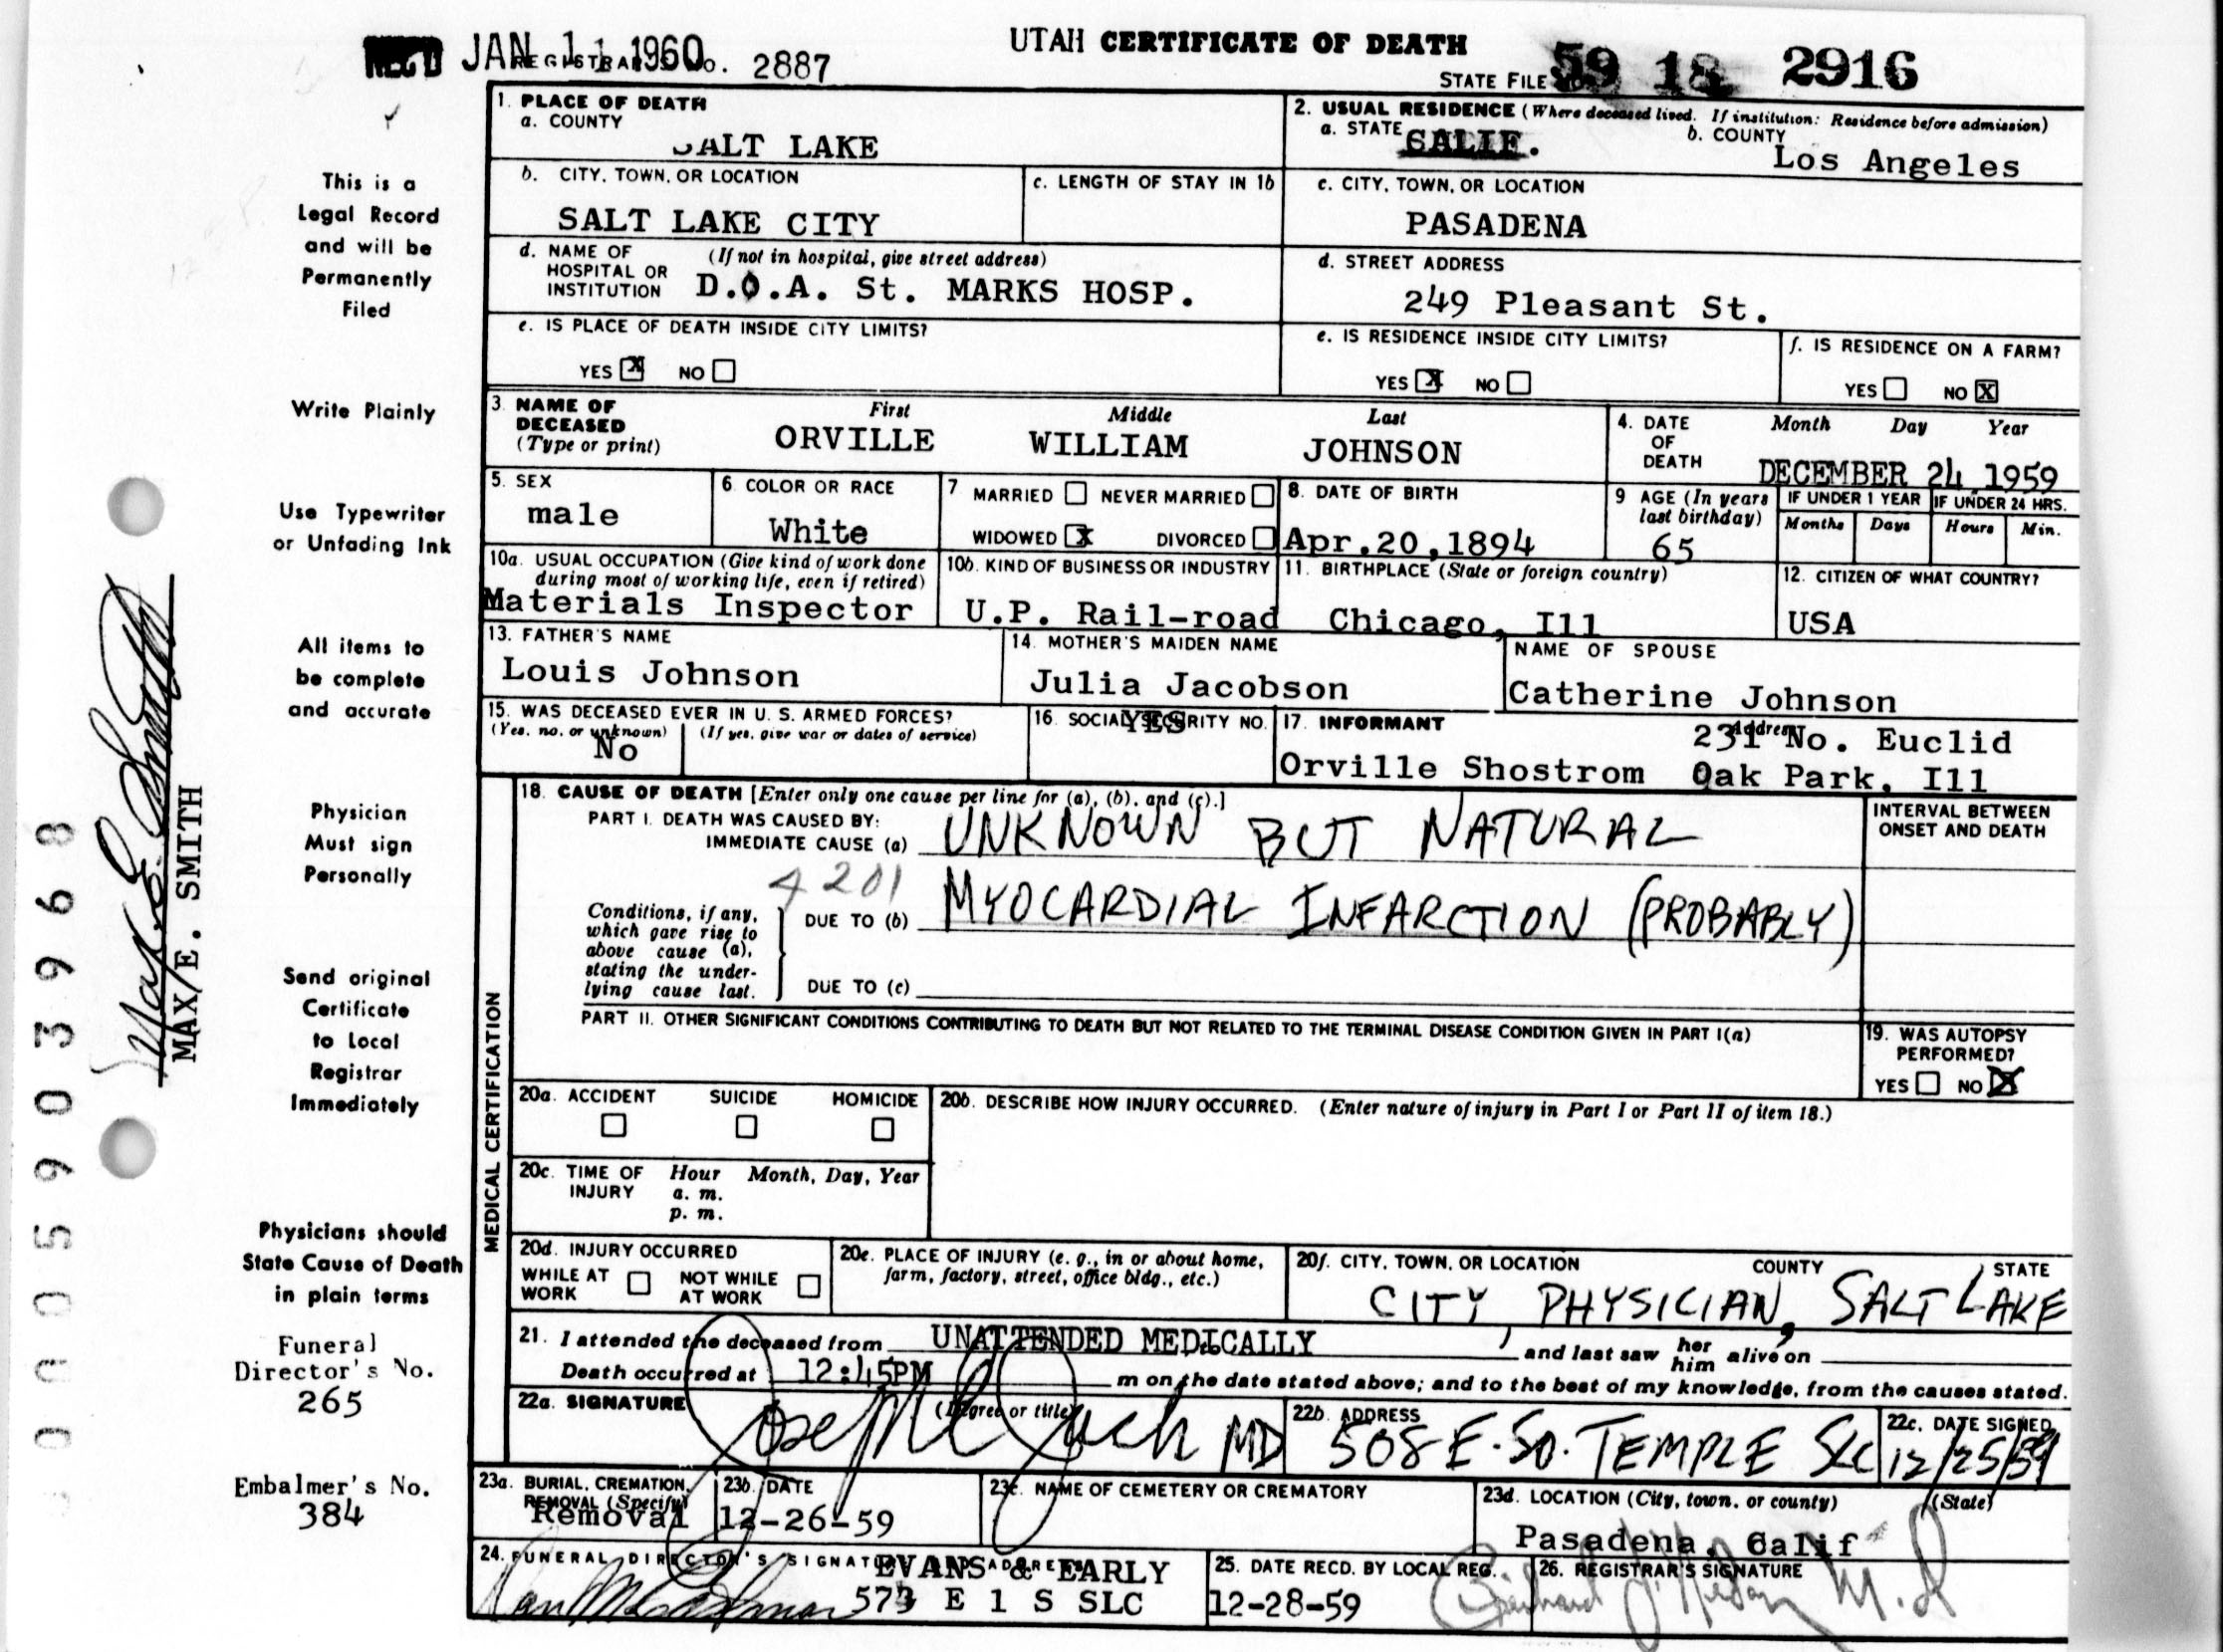 REC'D JAN 11 1960
REGISTRAR'S No. 2887
UTAH CERTIFICATE OF DEATH
STATE FILE 59 18 2916
This is a
Legal Record
and will be
Permanently
Filed
Write Plainly
Use Typewriter
or Unfading Ink
All items to
be complete
and accurate
Physician
Must sign
Personally
Send original
Certificate
to Local
Registrar
Immediately
Physicians should
State Cause of Death
in plain terms
Funeral
Director's No.
265
Embalmer's No.
384
Max E. Smith
MAX/E. SMITH
1. PLACE OF DEATH
a. COUNTY
SALT LAKE
b. CITY, TOWN, OR LOCATION
SALT LAKE CITY
c. LENGTH OF STAY IN 1b
d. NAME OF (If not in hospital, give street address)
HOSPITAL OR
INSTITUTION D.O.A. St. MARKS HOSP.
e. IS PLACE OF DEATH INSIDE CITY LIMITS?
YES X NO
2. USUAL RESIDENCE (Where deceased lived. If institution: Residence before admission)
a. STATE CALIF. b. COUNTY Los Angeles
c. CITY, TOWN, OR LOCATION
PASADENA
d. STREET ADDRESS
249 Pleasant St.
e. IS RESIDENCE INSIDE CITY LIMITS?
YES X NO
f. IS RESIDENCE ON A FARM?
YES NO X
3. NAME OF DECEASED (Type or print)
First Middle Last
ORVILLE WILLIAM JOHNSON
4. DATE OF DEATH Month Day Year
DECEMBER 24 1959
5. SEX
male
6. COLOR OR RACE
White
7 MARRIED NEVER MARRIED
WIDOWED X DIVORCED
8. DATE OF BIRTH
Apr.20,1894
9 AGE (In years last birthday)
65
IF UNDER 1 YEAR IF UNDER 24 HRS.
Months Days Hours Min.
10a. USUAL OCCUPATION (Give kind of work done
during most of working life, even if retired)
Materials Inspector
10b. KIND OF BUSINESS OR INDUSTRY
U.P. Rail-road
11. BIRTHPLACE (State or foreign country)
Chicago, Ill
12. CITIZEN OF WHAT COUNTRY?
USA
13. FATHER'S NAME
Louis Johnson
14. MOTHER'S MAIDEN NAME
Julia Jacobson
NAME OF SPOUSE
Catherine Johnson
15. WAS DECEASED EVER IN U. S. ARMED FORCES?
(Yes, no, or unknown) (If yes, give war or dates of service)
No
16. SOCIAL SECURITY NO.
YES
17. INFORMANT Address
231 No. Euclid
Orville Shostrom Oak Park, Ill
MEDICAL CERTIFICATION
18. CAUSE OF DEATH [Enter only one cause per line for (a), (b), and (c).]
PART I. DEATH WAS CAUSED BY:
IMMEDIATE CAUSE (a) UNKNOWN BUT NATURAL
4201
Conditions, if any,
which gave rise to
above cause (a),
stating the under-
lying cause last.
DUE TO (b) MYOCARDIAL INFARCTION (PROBABLY)
DUE TO (c)
INTERVAL BETWEEN
ONSET AND DEATH
PART II. OTHER SIGNIFICANT CONDITIONS CONTRIBUTING TO DEATH BUT NOT RELATED TO THE TERMINAL DISEASE CONDITION GIVEN IN PART I(a)
19. WAS AUTOPSY
PERFORMED?
YES NO X
20a. ACCIDENT SUICIDE HOMICIDE
20b. DESCRIBE HOW INJURY OCCURRED. (Enter nature of injury in Part I or Part II of item 18.)
20c. TIME OF INJURY Hour Month, Day, Year
a. m.
p. m.
20d. INJURY OCCURRED
WHILE AT WORK NOT WHILE AT WORK
20e. PLACE OF INJURY (e. g., in or about home,
farm, factory, street, office bldg., etc.)
20f. CITY, TOWN, OR LOCATION COUNTY STATE
CITY PHYSICIAN, SALT LAKE
21. I attended the deceased from UNATTENDED MEDICALLY, and last saw her him alive on
Death occurred at 12:45PM m on the date stated above; and to the best of my knowledge, from the causes stated.
22a. SIGNATURE (Degree or title)
Joseph MD
22b. ADDRESS
508 E. SO. TEMPLE SLC
22c. DATE SIGNED
12/25/59
23a. BURIAL, CREMATION,
REMOVAL (Specify)
Removal
23b. DATE
12-26-59
23c. NAME OF CEMETERY OR CREMATORY
23d. LOCATION (City, town, or county) (State)
Pasadena, Calif
24. FUNERAL DIRECTOR'S SIGNATURE AND ADDRESS
EVANS & EARLY
573 E 1 S SLC
25. DATE RECD. BY LOCAL REG.
12-28-59
26. REGISTRAR'S SIGNATURE
M.D